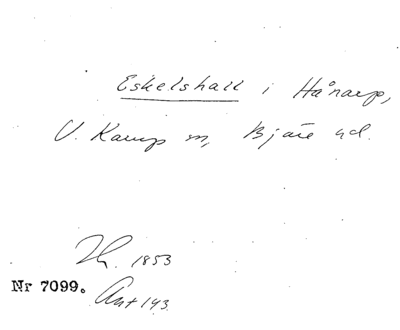 Eskelshall i Hånarp,
V. Karup sn, Bjäre hd.
1853
Nr 7099. Ant 143.